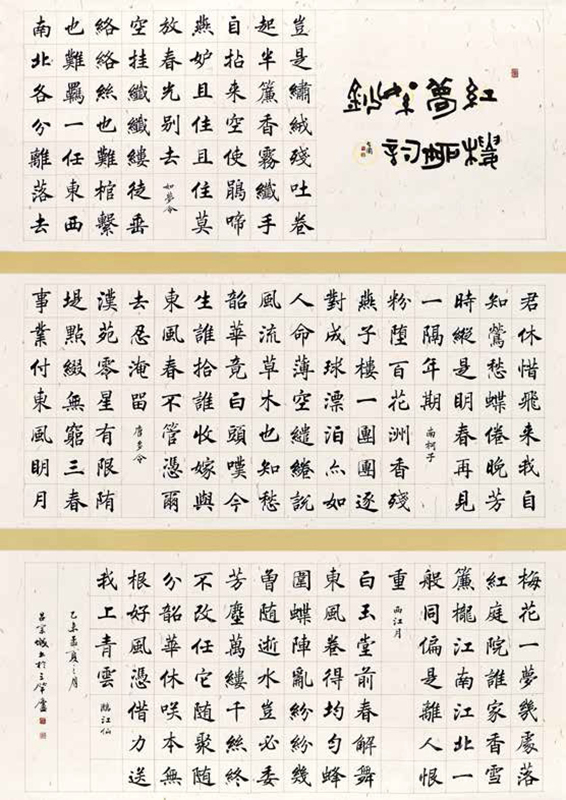 紅樓夢柳絮詞鈔
豈是繡絨殘吐卷
起半簾香霧纖手
自拈來空使鵑啼
燕妒且住且住莫
放春光別去 如夢令
空挂纖纖縷徒垂
絡絡絲也難棺繫
也難羈一任東西
南北各分離落去
君休惜飛來我自
知鶯愁蝶倦晚芳
時縱是明春再見
一隅年期 南柯子
粉堕百花洲香殘
燕子樓一團團逐
對成球漂泊亦如
人命薄空繾綣說
風流草木也知愁
韶華竟白頭嘆今
生誰拾誰收嫁與
東風春不管憑爾
去忍淹留 唐多令
漢苑零星有限隋
堤點綴無窮三春
事業付東風明月
梅花一夢幾處落
紅庭院誰家香雪
簾櫳江南江北一
般同偏是離人恨
重 西江月
白玉堂前春解舞
東風卷得均勻蜂
圍蝶陣亂紛紛幾
曾隨逝水豈必委
芳塵萬縷千絲終
不改任它隨聚隨
分韶華休咲本無
根好風憑借力送
我上青雲 臨江仙
乙未孟夏之月
呂城書於三盧